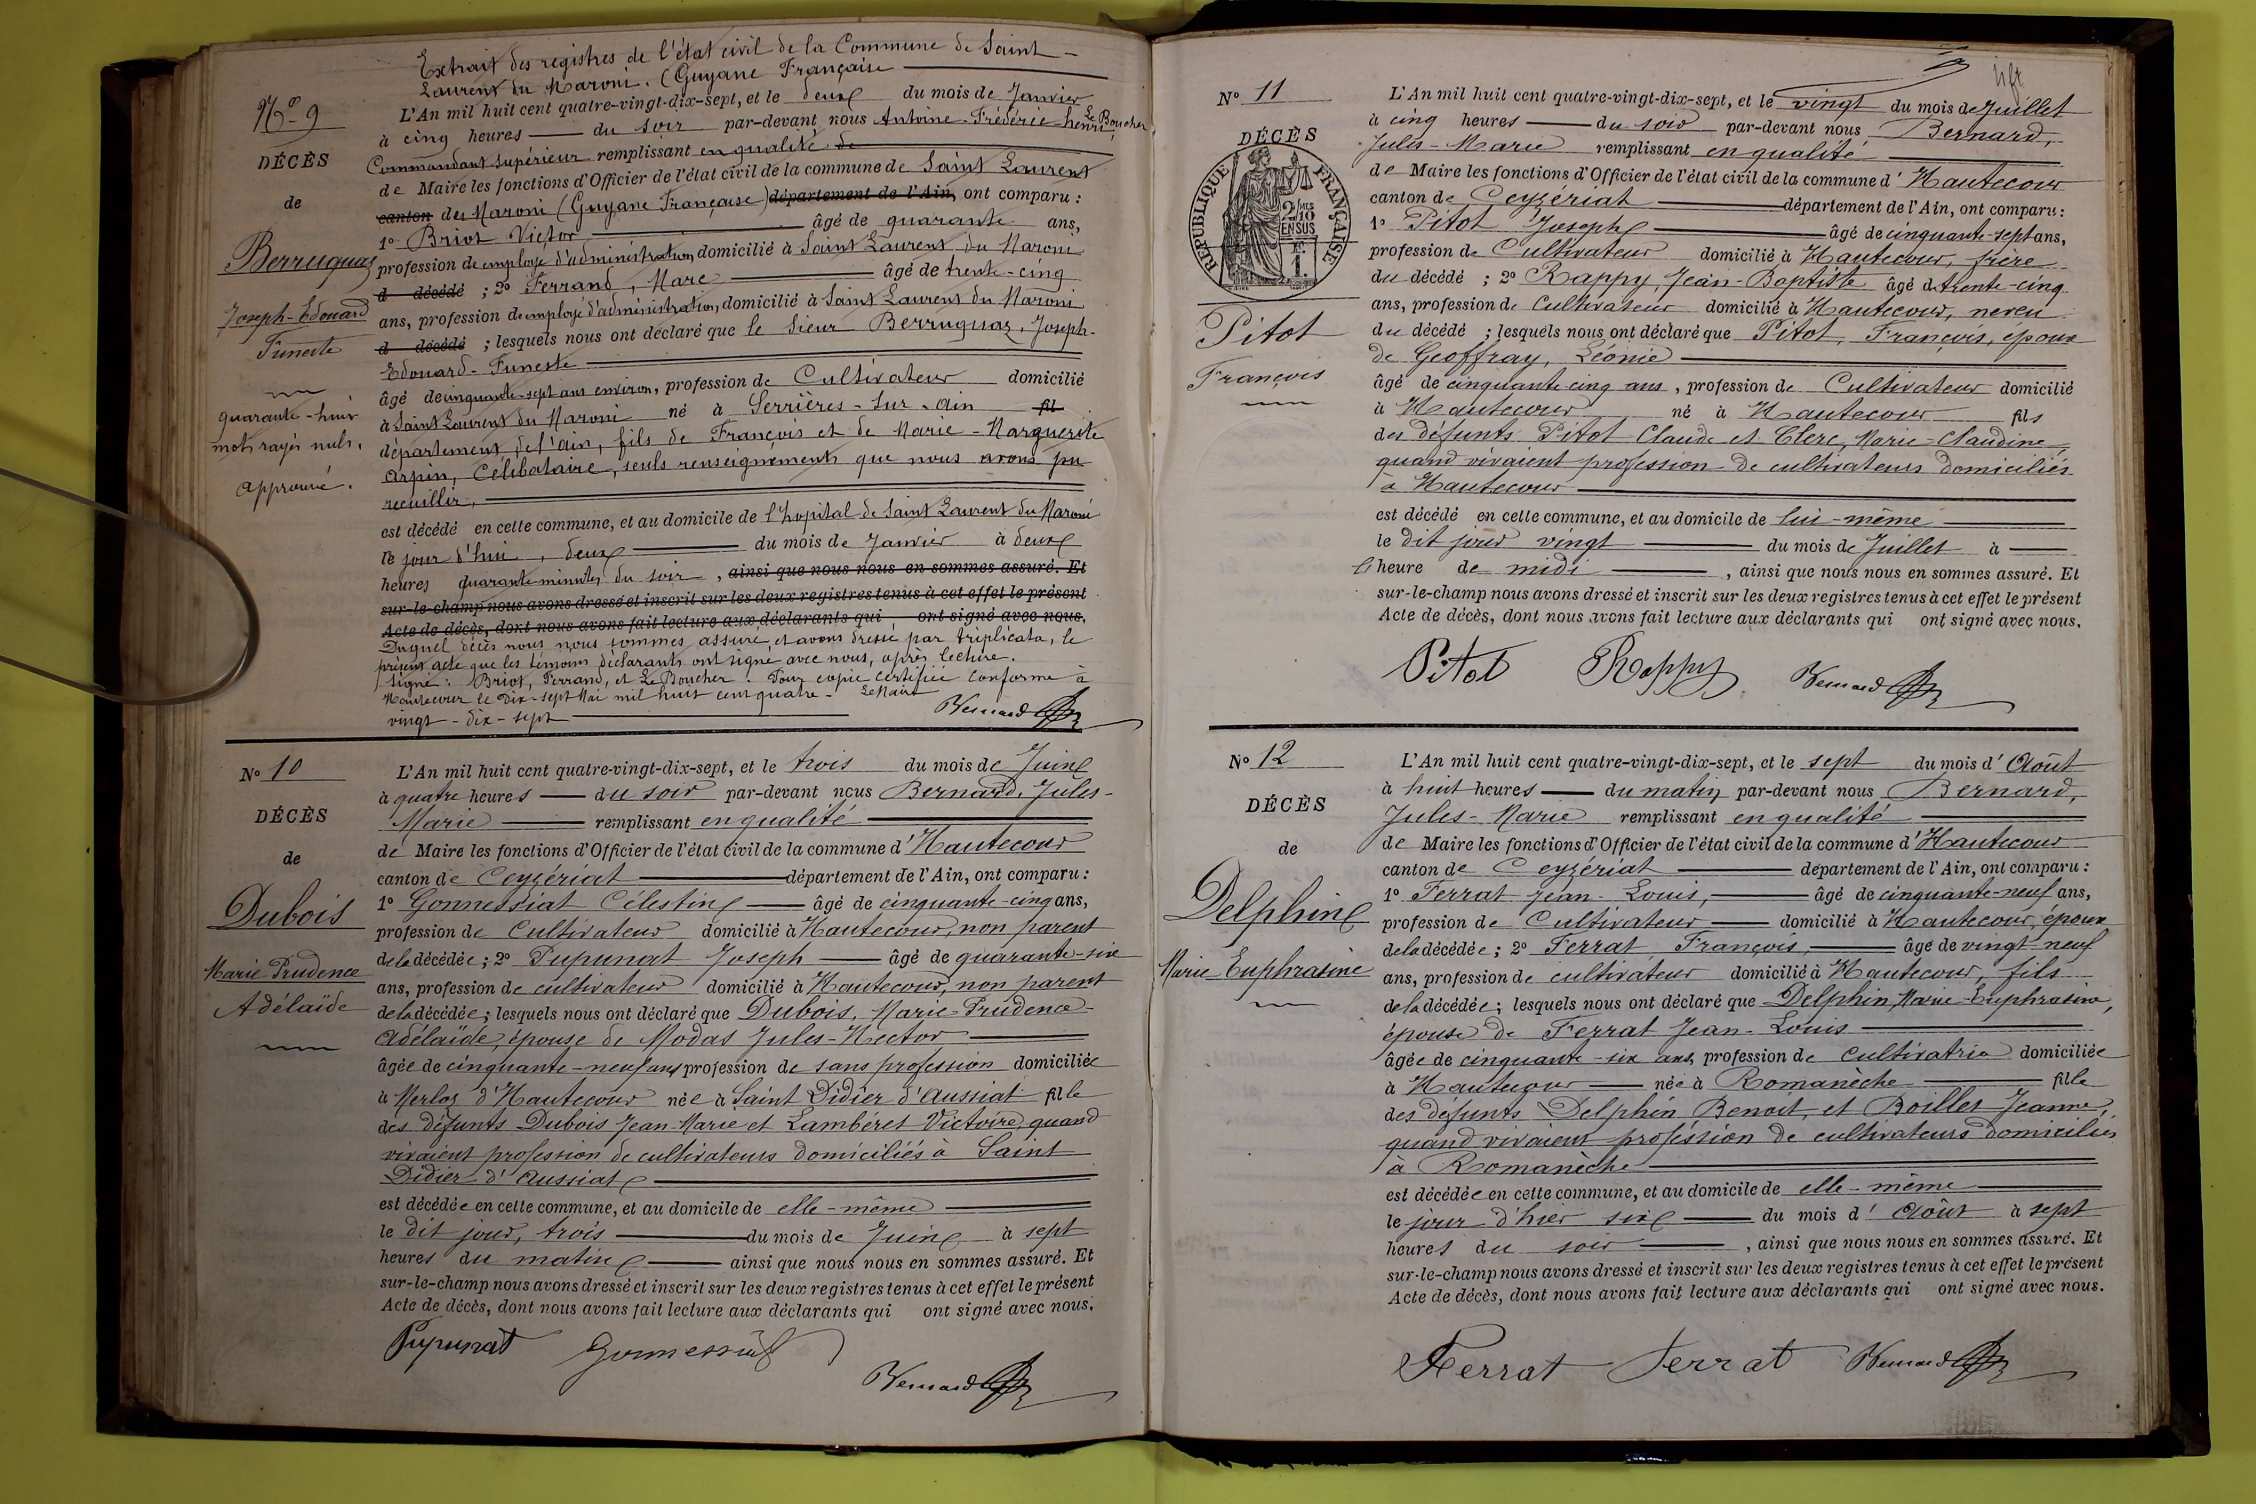 Extrait des registres de l'état civil de la Commune de Saint-
Laurent du Maroni. (Guyane Française
No 9
DÉCÈS
de
Berruquaz
Joseph-Edouard
Funeste
quarante-huit
mots rayés nuls.
approuvé.
L'An mil huit cent quatre-vingt-dix-sept, et le deux du mois de Janvier
à cinq heures du soir par-devant nous Antoine-Frédéric henri, Le Boucher
Commandant supérieur remplissant en qualité de
de Maire les fonctions d'Officier de l'état civil de la commune de Saint Laurent
canton du Maroni (Guyane Française) département de l'Ain, ont comparu :
1o Briot Victor âgé de quarante ans,
profession de employé d'administration domicilié à Saint Laurent du Maroni
d décédé ; 2o Ferrand, Marc âgé de trente-cinq
ans, profession de employé d'administration, domicilié à Saint Laurent du Maroni
d décédé ; lesquels nous ont déclaré que le Sieur Berruquaz, Joseph-
Edouard-Funeste
âgé de cinquante-sept ans environ, profession de Cultivateur domicilié
à Saint Laurent du Maroni né à Serrières-sur-ain fil
département de l'ain, fils de François et de Marie-Marguerite
Arpin, Célibataire, seuls renseignements que nous avons pu
recueillir,
est décédé en cette commune, et au domicile de l'hopital de Saint Laurent du Maroni
le jour d'hui, deux du mois de Janvier à deux
heures quarante minutes du soir, ainsi que nous nous en sommes assuré. Et
sur-le-champ nous avons dressé et inscrit sur les deux registres tenus à cet effet le présent
Acte de décès, dont nous avons fait lecture aux déclarants qui ont signé avec nous.
Duquel décès nous nous sommes assuré, et avons dressé par triplicata, le
présent acte que les témoins déclarants ont signé avec nous, après lecture.
Signé : Briot, Ferrand, et Le Boucher. Pour copie certifiée conforme à
Hautecour le Dix-sept Mai mil huit cent quatre- Le Maire
vingt-dix-sept
Bernard
No 10
DÉCÈS
de
Dubois
Marie Prudence
Adélaïde
L'An mil huit cent quatre-vingt-dix-sept, et le trois du mois de Juin
à quatre heures du soir par-devant nous Bernard, Jules-
Marie remplissant en qualité
de Maire les fonctions d'Officier de l'état civil de la commune d'Hautecour
canton de Ceyzériat département de l'Ain, ont comparu :
1o Gonnessiat Célestin âgé de cinquante-cinq ans,
profession de Cultivateur domicilié à Hautecour, non parent
de la décédée ; 2o Pupunat Joseph âgé de quarante-six
ans, profession de cultivateur domicilié à Hautecour, non parent
de la décédée ; lesquels nous ont déclaré que Dubois, Marie-Prudence-
Adélaïde, épouse de Modas Jules-Hector
âgée de cinquante-neuf ans profession de sans profession domiciliée
à Merloz d'Hautecour née à Saint Didier d'Aussiat fille
des défunts Dubois Jean-Marie et Lambéret Victoire, quand
vivaient profession de cultivateurs domiciliés à Saint
Didier d'Aussiat
est décédée en cette commune, et au domicile de elle-même
le dit jour, trois du mois de Juin à sept
heures du matin ainsi que nous nous en sommes assuré. Et
sur-le-champ nous avons dressé et inscrit sur les deux registres tenus à cet effet le présent
Acte de décès, dont nous avons fait lecture aux déclarants qui ont signé avec nous.
Pupunat Gonnessiat
Bernard
No 11
DÉCÈS
RÉPUBLIQUE FRANÇAISE
2/10 EN SUS
Pitot
François
L'An mil huit cent quatre-vingt-dix-sept, et le vingt du mois de Juillet
à cinq heures du soir par-devant nous Bernard,
Jules-Marie remplissant en qualité
de Maire les fonctions d'Officier de l'état civil de la commune d'Hautecour
canton de Ceyzériat département de l'Ain, ont comparu :
1o Pitot Joseph âgé de cinquante-sept ans,
profession de Cultivateur domicilié à Hautecour, frère
du décédé ; 2o Rappy, Jean-Baptiste âgé de trente-cinq
ans, profession de Cultivateur domicilié à Hautecour, neveu
du décédé ; lesquels nous ont déclaré que Pitot, François, époux
de Geoffray, Léonie
âgé de cinquante cinq ans, profession de Cultivateur domicilié
à Hautecour né à Hautecour fils
des défunts Pitot Claude et Clerc, Marie-Claudine,
quand vivaient profession de cultivateurs domiciliés
à Hautecour
est décédé en cette commune, et au domicile de lui-même
le dit jour vingt du mois de Juillet à
l'heure de midi, ainsi que nous nous en sommes assuré. Et
sur-le-champ nous avons dressé et inscrit sur les deux registres tenus à cet effet le présent
Acte de décès, dont nous avons fait lecture aux déclarants qui ont signé avec nous.
Pitot Rappy Bernard
No 12
DÉCÈS
de
Delphin
Marie Euphrasine
L'An mil huit cent quatre-vingt-dix-sept, et le sept du mois d'Août
à huit heures du matin par-devant nous Bernard,
Jules-Marie remplissant en qualité
de Maire les fonctions d'Officier de l'état civil de la commune d'Hautecour
canton de Ceyzériat département de l'Ain, ont comparu :
1o Ferrat Jean-Louis, âgé de cinquante-neuf ans,
profession de Cultivateur domicilié à Hautecour, époux
de la décédée ; 2o Ferrat, François, âgé de vingt-neuf
ans, profession de cultivateur domicilié à Hautecour, fils
de la décédée ; lesquels nous ont déclaré que Delphin, Marie-Euphrasine,
épouse de Ferrat Jean-Louis
âgée de cinquante-six ans, profession de cultivatrice domiciliée
à Hautecour née à Romanèche fille
des défunts Delphin Benoit, et Boillet Jeanne,
quand vivaient profession de cultivateurs domiciliés
à Romanèche
est décédée en cette commune, et au domicile de elle-même
le jour d'hier six du mois d'Août à sept
heures du soir, ainsi que nous nous en sommes assuré. Et
sur-le-champ nous avons dressé et inscrit sur les deux registres tenus à cet effet le présent
Acte de décès, dont nous avons fait lecture aux déclarants qui ont signé avec nous.
Ferrat Ferrat Bernard